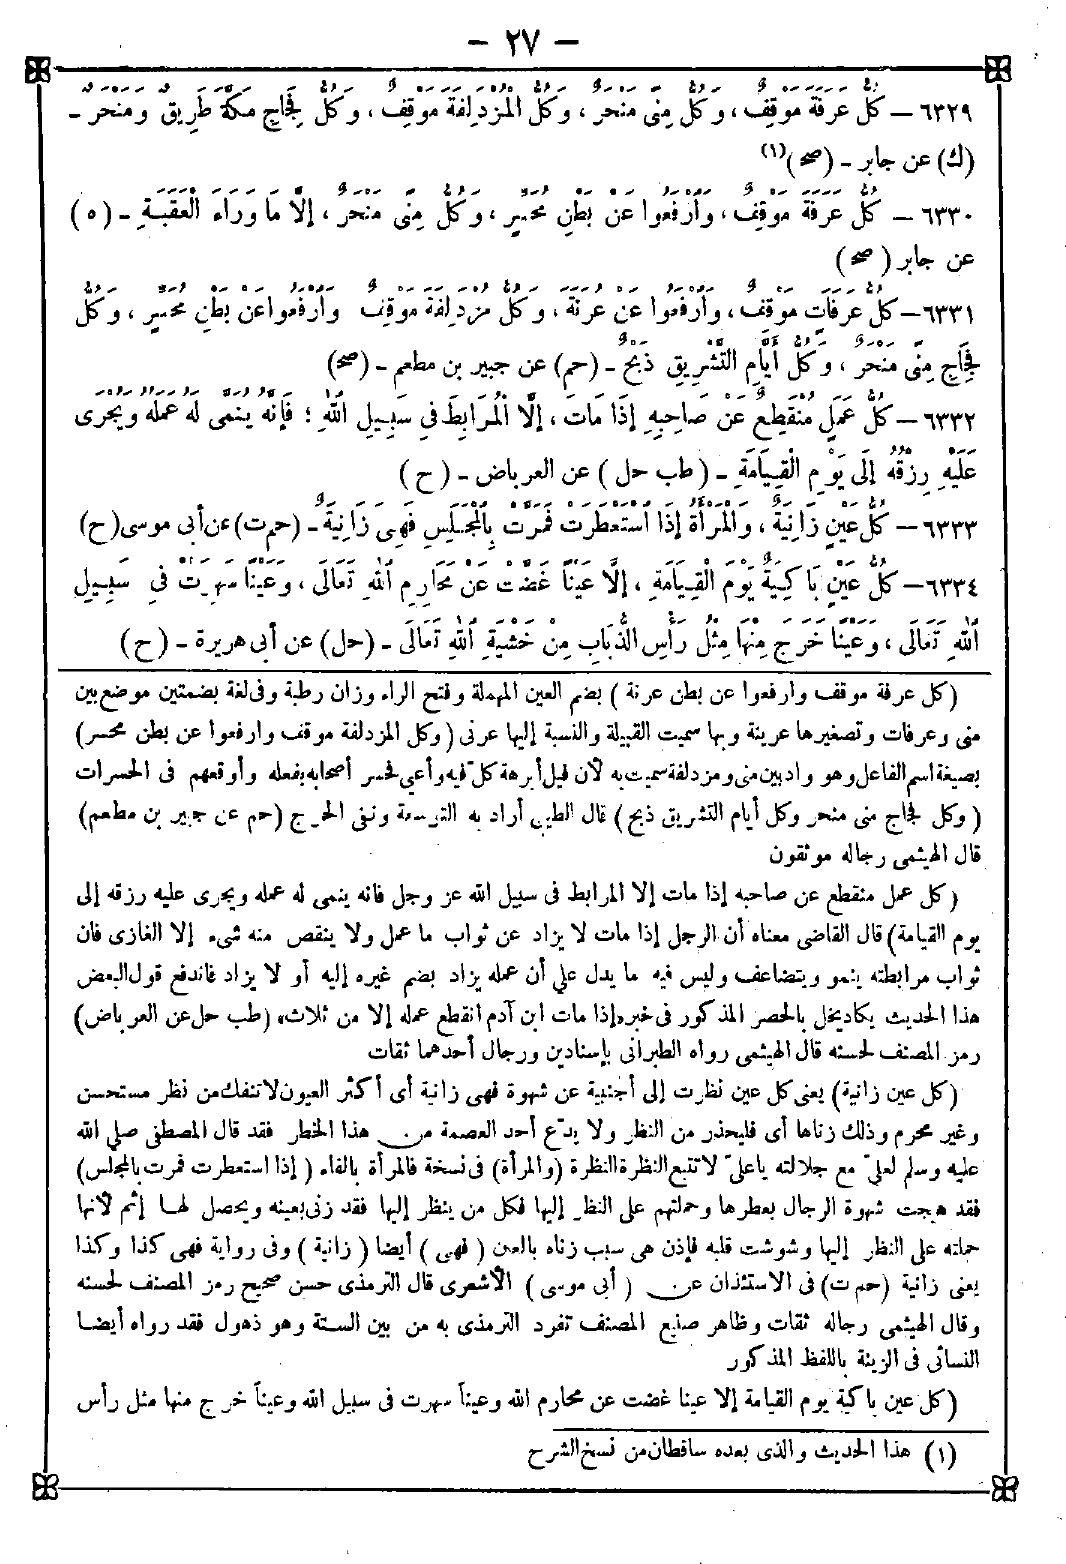 — ٢٧ —
٦٣٢٩ — كُلُّ عَرَفَةَ مَوْقِفٌ، وَكُلُّ مِنًى مَنْحَرٌ، وَكُلُّ الْمُزْدَلِفَةِ مَوْقِفٌ، وَكُلُّ فِجَاجِ مَكَّةَ طَرِيقٌ وَمَنْحَرٌ -
(ك) عن جابر - (صح)(١)
٦٣٣٠ — كُلُّ عَرَفَةَ مَوْقِفٌ، وَٱرْفَعُوا عَنْ بَطْنِ مُحَسِّرٍ، وَكُلُّ مِنًى مَنْحَرٌ، إِلَّا مَا وَرَاءَ الْعَقَبَةِ - (ه)
عن جابر (صح)
٦٣٣١ — كُلُّ عَرَفَاتٍ مَوْقِفٌ، وَٱرْفَعُوا عَنْ عُرَنَةَ، وَكُلُّ مُزْدَلِفَةَ مَوْقِفٌ وَٱرْفَعُوا عَنْ بَطْنِ مُحَسِّرٍ، وَكُلُّ
فِجَاجِ مِنًى مَنْحَرٌ، وَكُلُّ أَيَّامِ التَّشْرِيقِ ذَبْحٌ - (حم) عن جبير بن مطعم - (صح)
٦٣٣٢ — كُلُّ عَمَلٍ مُنْقَطِعٌ عَنْ صَاحِبِهِ إِذَا مَاتَ، إِلَّا الْمُرَابِطَ فِي سَبِيلِ اللهِ؛ فَإِنَّهُ يَنْمَى لَهُ عَمَلُهُ وَيَجْرَى
عَلَيْهِ رِزْقُهُ إِلَى يَوْمِ الْقِيَامَةِ - (طب حل) عن العرباض - (ح)
٦٣٣٣ — كُلُّ عَيْنٍ زَانِيَةٌ، وَالْمَرْأَةُ إِذَا ٱسْتَعْطَرَتْ فَمَرَّتْ بِالْمَجْلِسِ فَهِيَ زَانِيَةٌ - (حم ت) عن أبى موسى (ح)
٦٣٣٤ — كُلُّ عَيْنٍ بَاكِيَةٌ يَوْمَ الْقِيَامَةِ، إِلَّا عَيْنًا غَضَّتْ عَنْ مَحَارِمِ اللهِ تَعَالَى، وَعَيْنًا سَهِرَتْ فِي سَبِيلِ
اللهِ تَعَالَى، وَعَيْنًا خَرَجَ مِنْهَا مِثْلُ رَأْسِ الذُّبَابِ مِنْ خَشْيَةِ اللهِ تَعَالَى - (حل) عن أبى هريرة - (ح)
(كل عرفة موقف وارفعوا عن بطن عرنة) بضم العين المهملة وفتح الراء وزان رطبة وفى لغة بضمتين موضع بين
منى وعرفات وتصغيرها عرينة وبها سميت القبيلة والنسبة إليها عرنى (وكل المزدلفة موقف وارفعوا عن بطن محسر)
بصيغة اسم الفاعل وهو واد بين منى ومزدلفة سميت به لأن فيل أبرهة كلّ فيه وأعي فحسر أصحابه بفعله وأوقعهم فى الحسرات
(وكل فجاج منى منحر وكل أيام التشريق ذبح) قال الطيبى أراد به التوسعة ونفى الحرج (حم عن جبير بن مطعم)
قال الهيثمى رجاله موثقون
(كل عمل منقطع عن صاحبه إذا مات إلا المرابط فى سبيل الله عز وجل فانه ينمى له عمله ويجرى عليه رزقه إلى
يوم القيامة) قال القاضى معناه أن الرجل إذا مات لا يزاد عن ثواب ما عمل ولا ينقص منه شىء إلا الغازى فان
ثواب مرابطته ينمو ويتضاعف وليس فيه ما يدل علي أن عمله يزاد بضم غيره إليه أو لا يزاد فاندفع قول البعض
هذا الحديث يكاد يخل بالحصر المذكور فى خبر «إذا مات ابن آدم انقطع عمله إلا من ثلاث» (طب حل عن العرباض)
رمز المصنف لحسنه قال الهيثمى رواه الطبرانى بإسنادين ورجال أحدهما ثقات
(كل عين زانية) يعنى كل عين نظرت إلى أجنبية عن شهوة فهى زانية أى أكثر العيون لا تنفك من نظر مستحسن
وغير محرم وذلك زناها أى فليحذر من النظر ولا يدّع أحد العصمة من هذا الخطر فقد قال المصطفى صلى الله
عليه وسلم لعليّ مع جلالته يا عليّ لا تتبع النظرة النظرة (والمرأة) فى نسخة فالمرأة بالفاء (إذا استعطرت فمرت بالمجلس)
فقد هيجت شهوة الرجال بعطرها وحملتهم على النظر إليها فكل من ينظر إليها فقد زنى بعينه ويحصل لها إثم لأنها
حملته على النظر إليها وشوشت قلبه فإذن هى سبب زناه بالعين (فهى) أيضا (زانية) وفى رواية فهى كذا وكذا
يعنى زانية (حم ت) فى الاستئذان عن (أبى موسى) الأشعرى قال الترمذى حسن صحيح رمز المصنف لحسنه
وقال الهيثمى رجاله ثقات وظاهر صنيع المصنف تفرد الترمذى به من بين الستة وهو ذهول فقد رواه أيضا
النسائى فى الزينة باللفظ المذكور
(كل عين باكية يوم القيامة إلا عينا غضت عن محارم الله وعيناً سهرت فى سبيل الله وعيناً خرج منها مثل رأس
(١) هذا الحديث والذى بعده ساقطان من نسخ الشرح